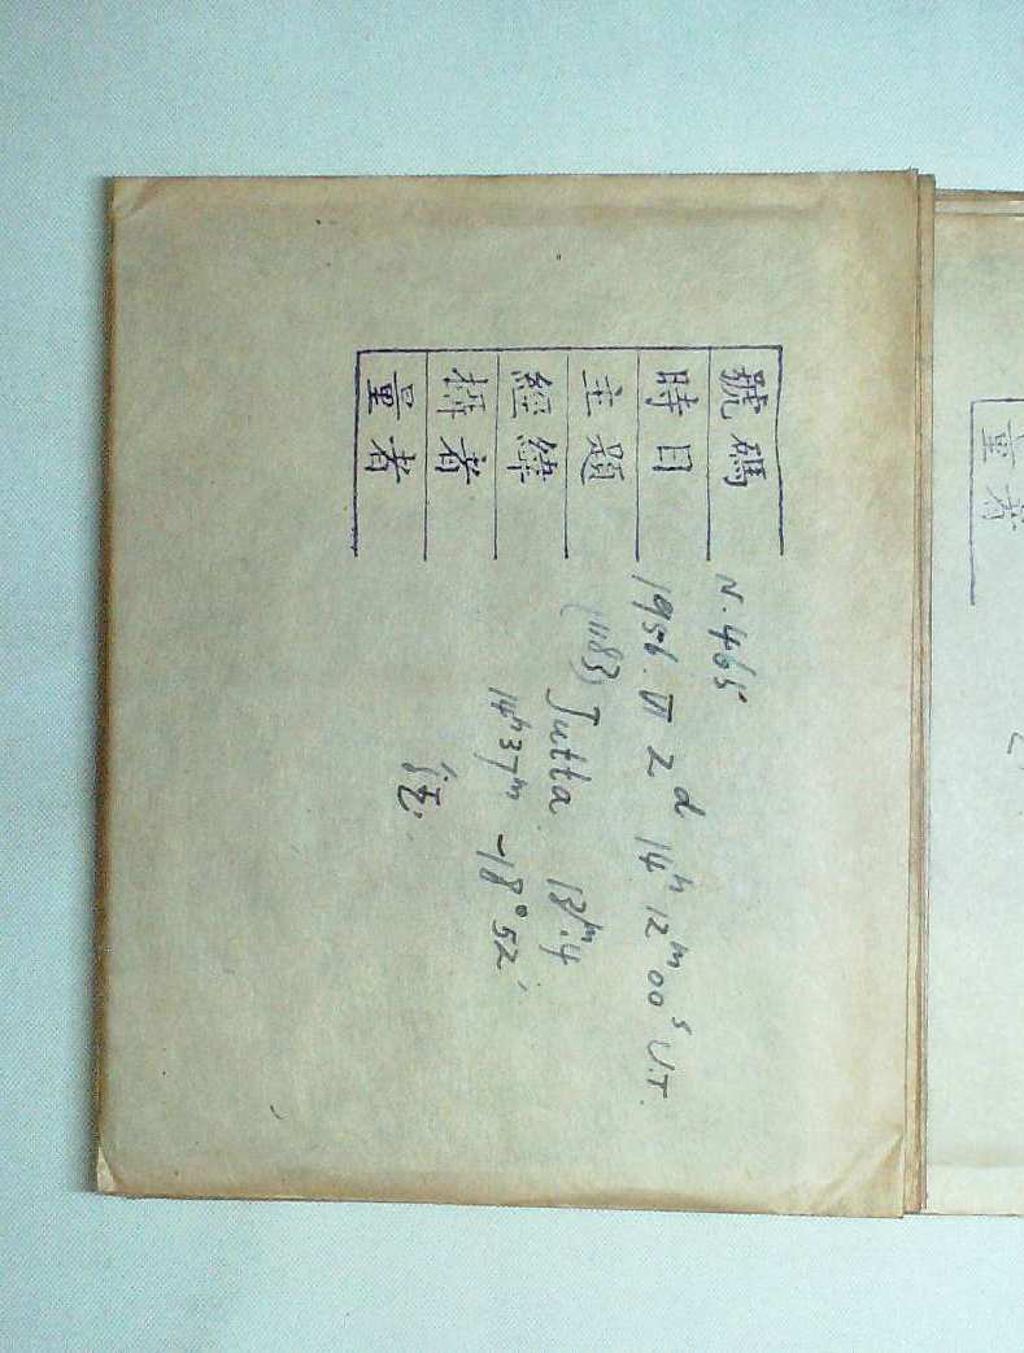 號碼 N. 465
時日 1956. VI 2ᵈ 14ʰ 12ᵐ 00ˢ U.T.
主題 (1183) Jutta 13ᵐ.4
經緯 14ʰ37ᵐ -18°52'
攝者
量者
量者